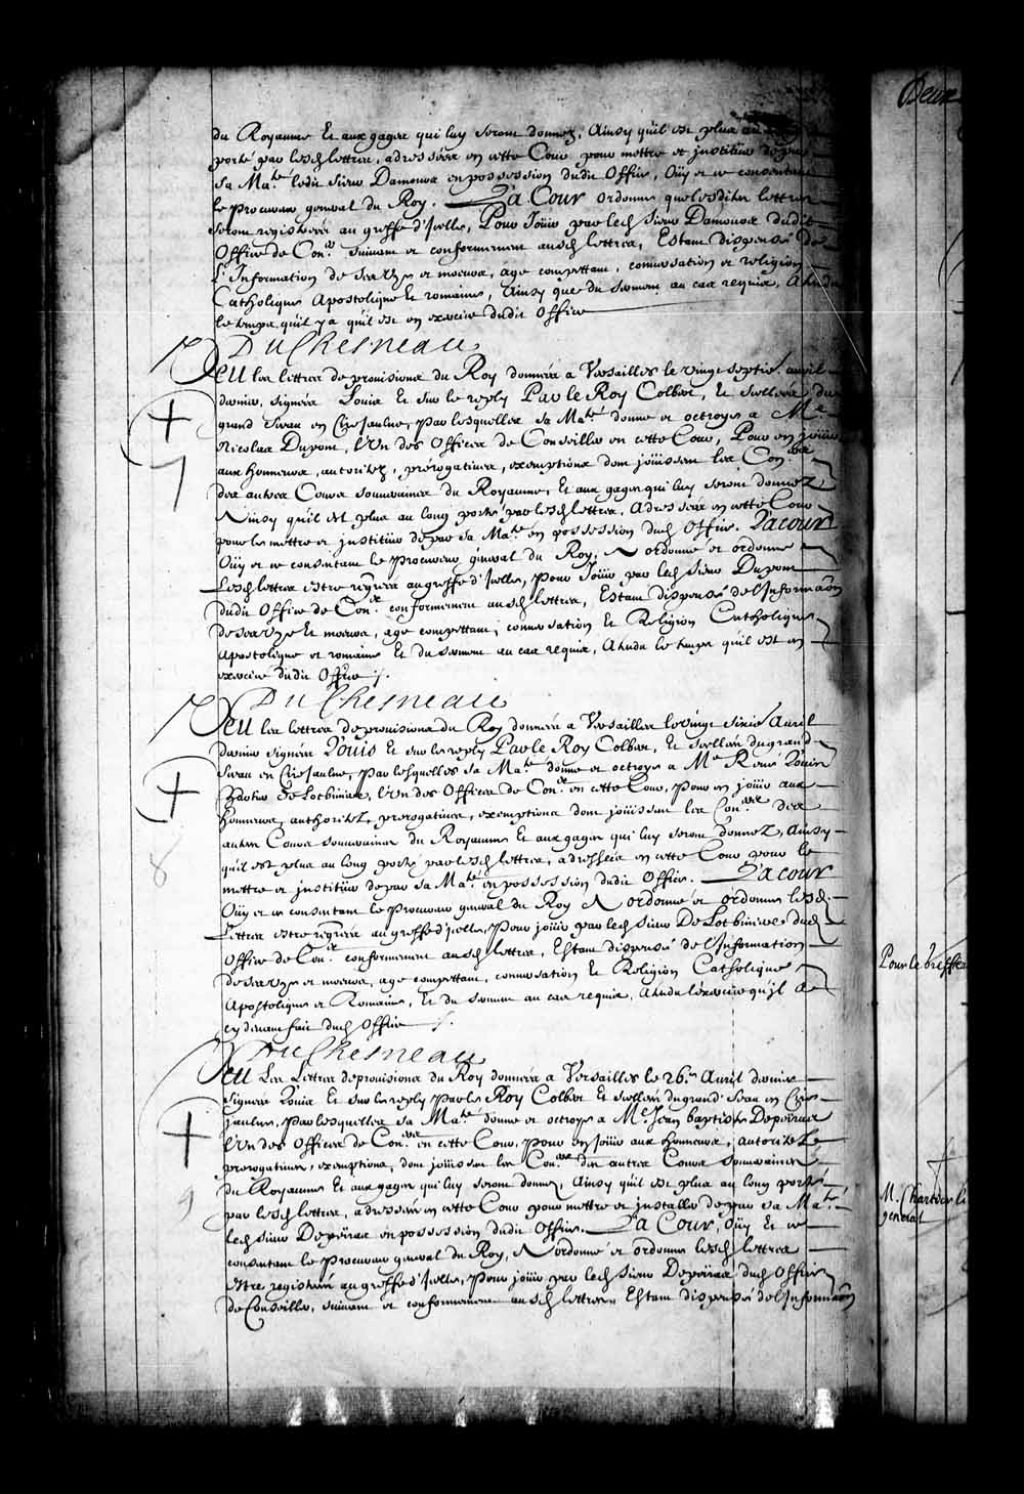 du Royaume Et aux gages qui luy seront donnez, Ainsy quil est plus au
porté par lesd lettres, adressées en cette Cour pour mettre et jnstituer de par
Sa Maté ledit Sieur Damours en possession dudit Office, Oüy et ce consentant
le procureur general du Roy. La Cour ordonne que lesdites lettres
seront registrées au greffe d'jcelle, Pour Joüir par led Sieur Damours dudit
Office de Coner suivant et conformement ausd lettres, Estant dispensé de
l'Information de ses vye et moeurs, age competant, conversation et religion
Catholique Apostolique Et romaine, Ainsy que du serment au cas requis, Attendu
le temps quil y a quil est en exercice dudit Office
DuChesneau
Veu les lettres de provisions du Roy données a Versailles le vingt septie avril
dernier, signées Louis Et sur le reply Par le Roy Colbert, Et scellées du
grand Sceau en Cire jaulne, par lesquelles sa Maté donne et octroye a Me
Nicolas Dupont, l'Un des Offices de Conseiller en cette Cour, Pour en joüir
aux honneurs, autoritez, prérogatives, exemptions dont joüissent les Coners
des autres Cours souveraines du Royaume, Et aux gages qui luy seront donnez
Ainsy quil est plus au long porté par lesd lettres, Adressées en cette Cour
pour le mettre et jnstituer de par sa Maté en possession dud Office. La cour
Oüy et ce consentant le procureur general du Roy, A ordonné et ordonne
Lesd lettres estre regrées au greffe d'jcelle, pour Joüir par led Sieur Dupont
dudit Office de Coner conformement ausd lettres, Estant dispensé de l'Informaon
de ses vye Et moeurs, age competant, conversation Et Religion Catholique
Apostolique et romaine Et du serment au cas requis, Attendu le temps quil est en
exercice dudit Office ./.
DuChesneau
Veu les lettres de provisions du Roy données a Versailles le vingt sixie Avril
dernier signées Louis Et sur le reply Par le Roy Colbert, Et scellées du grand
Sceau en Cire jaulne, par lesquelles sa Maté donne et octroye a Me René Louis
Chartier De Lotbiniere, l'Un des Offices de Coner en cette Cour, pour en joüir aux
honneurs, authoritez, prerogatives, exemptions dont joüissent les Coners des
autres Cours souveraines du Royaume Et aux gages qui luy seront donnez, Ainsy
quil est plus au long porté par lesd lettres, adressées en cette Cour pour le
mettre et jnstituer de par sa Maté en possession dudit Office. La cour
Oüy et ce consentant le procureur general du Roy A ordonné et ordonne lesd
Lettres estre regrées au greffe d'jcelle, Pour joüir par led Sieur De Lotbiniere dud
Office de Coner conformement ausd lettres, Estant dispensé de l'Information
de ses vye et moeurs, age competant, conversation Et Religion Catholique
Apostolique et Romaine, Et du serment au cas requis, Attendu l'exercice qu'jl a
cy devant fait dud Office ./.
DuChesneau
Veu Les Lettres de provisions du Roy données a Versailles le 26e Avril dernier
signées Louis Et sur le reply par le Roy Colbert Et scellées du grand Sceau en Cire
jaulne, par lesquelles sa Maté donne et octroye a Me Jean baptiste Depeiras
l'Un des Offices de Coner en cette Cour, pour en Joüir aux honneurs, autoritez
prerogatives, exemptions, dont joüissent les Coners des autres Cours souveraines
du Royaume Et aux gages qui luy seront donnez, Ainsy quil est plus au long porté
par lesd lettres, adressées en cette Cour pour mettre et jnstaller de par sa Maté
led Sieur Depeiras en possession dudit Office. La Cour, Oüy Et ce
consentant le procureur general du Roy, A ordonné et ordonne lesd lettres
estre registrées au greffe d'jcelle, pour joüir par led Sieur Depeiras dud Office
de Conseiller, suivant et conformement ausd lettres Estant dispensé de l'Informaon
7
8
9
Deux
Pour le greffe
M. Chartier li
general